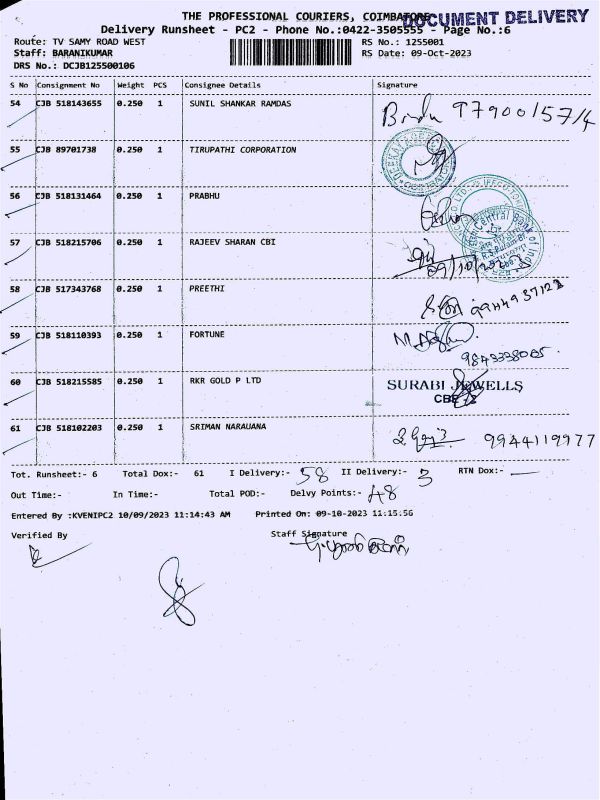 THE PROFESSIONAL COURIERS, COIMBATORE
DOCUMENT DELIVERY
Delivery Runsheet - PC2 - Phone No.:0422-3505555 - Page No.:6
Route: TV SAMY ROAD WEST RS No.: 1255001
Staff: BARANIKUMAR RS Date: 09-Oct-2023
DRS No.: DCJB125500106
S No Consignment No Weight PCS Consignee Details Signature
54 CJB 518143655 0.250 1 SUNIL SHANKAR RAMDAS
55 CJB 89701738 0.250 1 TIRUPATHI CORPORATION
56 CJB 518131464 0.250 1 PRABHU
57 CJB 518215706 0.250 1 RAJEEV SHARAN CBI
58 CJB 517343768 0.250 1 PREETHI
59 CJB 518110393 0.250 1 FORTUNE
60 CJB 518215585 0.250 1 RKR GOLD P LTD SURABI JEWELLS
61 CJB 518102203 0.250 1 SRIMAN NARAUANA 9944119977
Tot. Runsheet:- 6 Total Dox:- 61 I Delivery:- 58 II Delivery:- 3 RTN Dox:- —
Out Time:- In Time:- Total POD:- Delvy Points:- 48
Entered By :KVENIPC2 10/09/2023 11:14:43 AM Printed On: 09-10-2023 11:15:56
Verified By Staff Signature